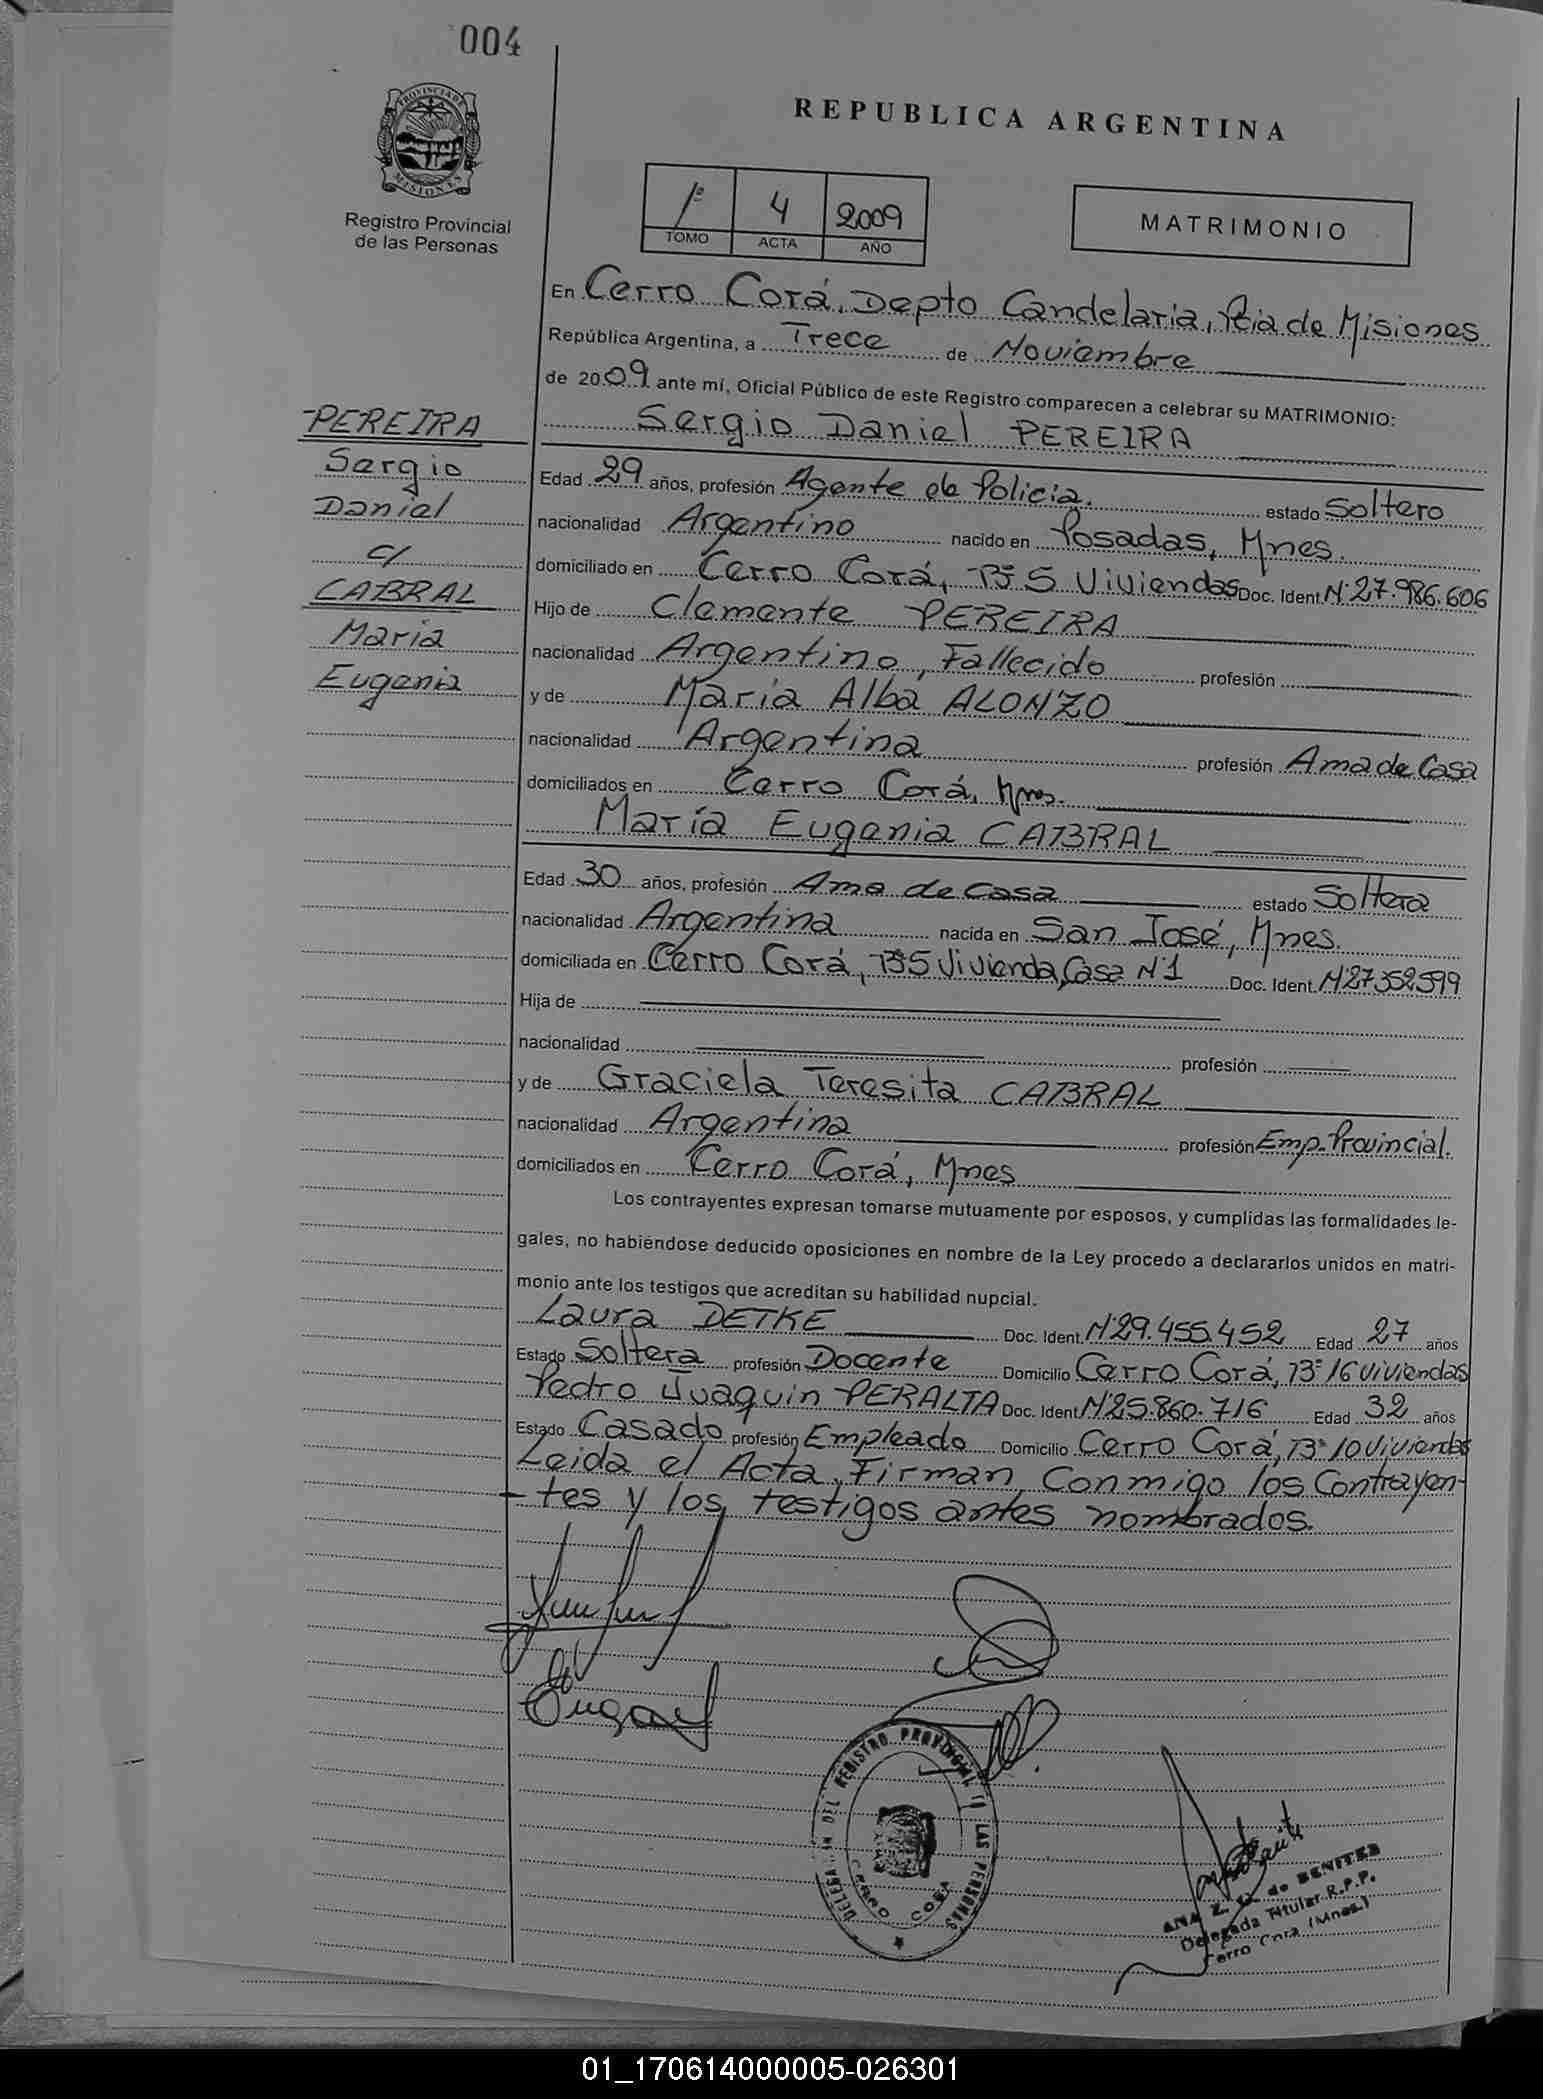 004
PROVINCIA DE
MISIONES
Registro Provincial
de las Personas
REPUBLICA ARGENTINA
1º 4 2009
TOMO ACTA AÑO
MATRIMONIO
En Cerro Corá, Depto Candelaria, Pcia de Misiones
República Argentina, a Trece de Noviembre
de 2009 ante mí, Oficial Público de este Registro comparecen a celebrar su MATRIMONIO:
PEREIRA
Sergio
Daniel
c/
CABRAL
Maria
Eugenia
Sergio Daniel PEREIRA
Edad 29 años, profesión Agente de Policia. estado Soltero
nacionalidad Argentino nacido en Posadas, Mnes.
domiciliado en Cerro Corá, Bº 5 Viviendas Doc. Ident. Nº 27.986.606
Hijo de Clemente PEREIRA
nacionalidad Argentino, Fallecido profesión
y de María Alba ALONZO
nacionalidad Argentina profesión Ama de Casa
domiciliados en Cerro Corá, Mnes.
María Eugenia CABRAL
Edad 30 años, profesión Ama de Casa estado Soltera
nacionalidad Argentina nacida en San José, Mnes.
domiciliada en Cerro Corá, Bº 5 Vivienda, Casa Nº 1 Doc. Ident. Nº 27.352.599
Hija de
nacionalidad profesión
y de Graciela Teresita CABRAL
nacionalidad Argentina profesión Emp. Provincial.
domiciliados en Cerro Corá, Mnes
Los contrayentes expresan tomarse mutuamente por esposos, y cumplidas las formalidades le-
gales, no habiéndose deducido oposiciones en nombre de la Ley procedo a declararlos unidos en matri-
monio ante los testigos que acreditan su habilidad nupcial.
Laura DETKE Doc. Ident. Nº 29.455.452 Edad 27 años
Estado Soltera profesión Docente Domicilio Cerro Corá, Bº 16 Viviendas
Pedro Juaquin PERALTA Doc. Ident. Nº 25.860.716 Edad 32 años
Estado Casado profesión Empleado Domicilio Cerro Corá, Bº 10 Viviendas
Leida el Acta, Firman Conmigo los Contrayen-
-tes y los testigos antes nombrados.
DELEGACION DEL REGISTRO PROVINCIAL DE LAS PERSONAS
CERRO CORA
ANA de BENITES
Delegada Titular R.P.P.
Cerro Cora (Mnes.)
01_170614000005-026301